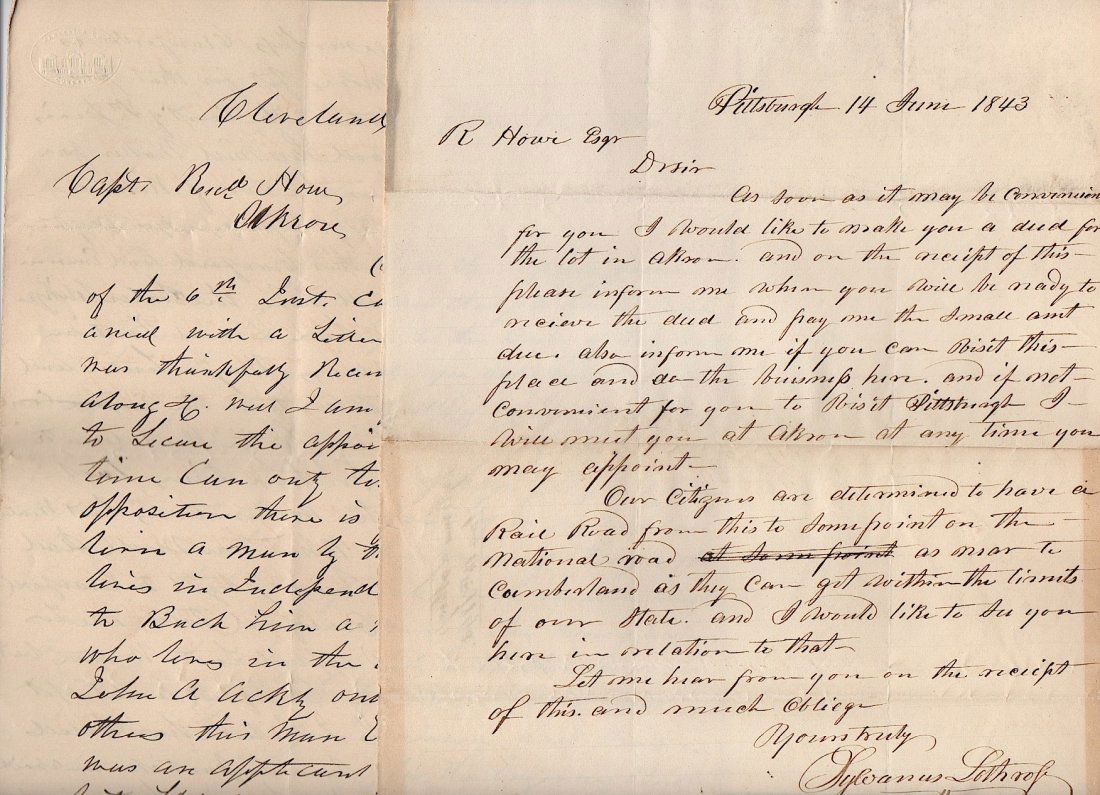 Cleveland
Capt. Richd Howe
Akron,
of the 6th Inst. Ca
aried with a Letter
was thankfully Recei
along H. will I am
to Secure the appoi
time Can only te
opposition there is
him a man by th
lives in Independ
to Back him a
who lives in the
John A Ackly and
others this man
was an applicant
Pittsburgh 14 June 1843
R Howe Esqr
Dr sir
As soon as it may be convenien
for you I would like to make you a deed for
the lot in Akron. and on the receipt of this
please inform me when you will be ready to
recieve the deed and pay me the small amt
due. also inform me if you can visit this
place and do the buisness here. and if not
convenient for you to visit Pittsburgh I
will meet you at Akron at any time you
may appoint
Our Citizens are determined to have a
Rail Road from this to some point on the
National road at some point as near to
Cumberland as they can get within the limits
of our state. and I would like to see you
here in relation to that
Let me hear from you on the reciept
of this. and much obliege
Yours truly
Sylvanus Lothrop